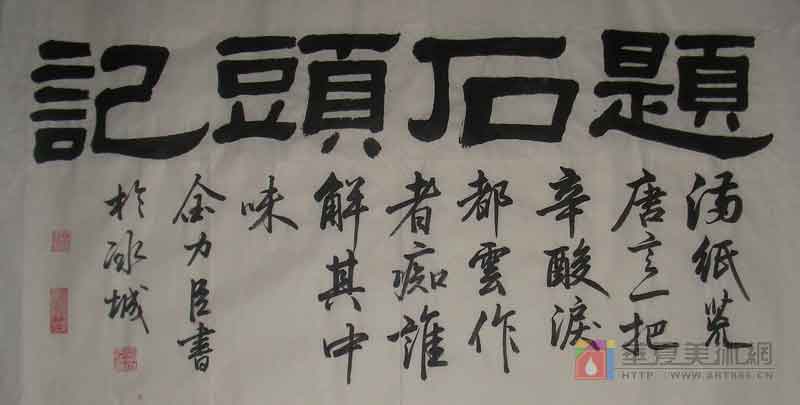 題石頭記
滿紙荒
唐言一把
辛酸淚
都雲作
者痴誰
解其中
味
金力臣書
於冰城
華夏美術網
HTTP://WWW.ARTX86.CN